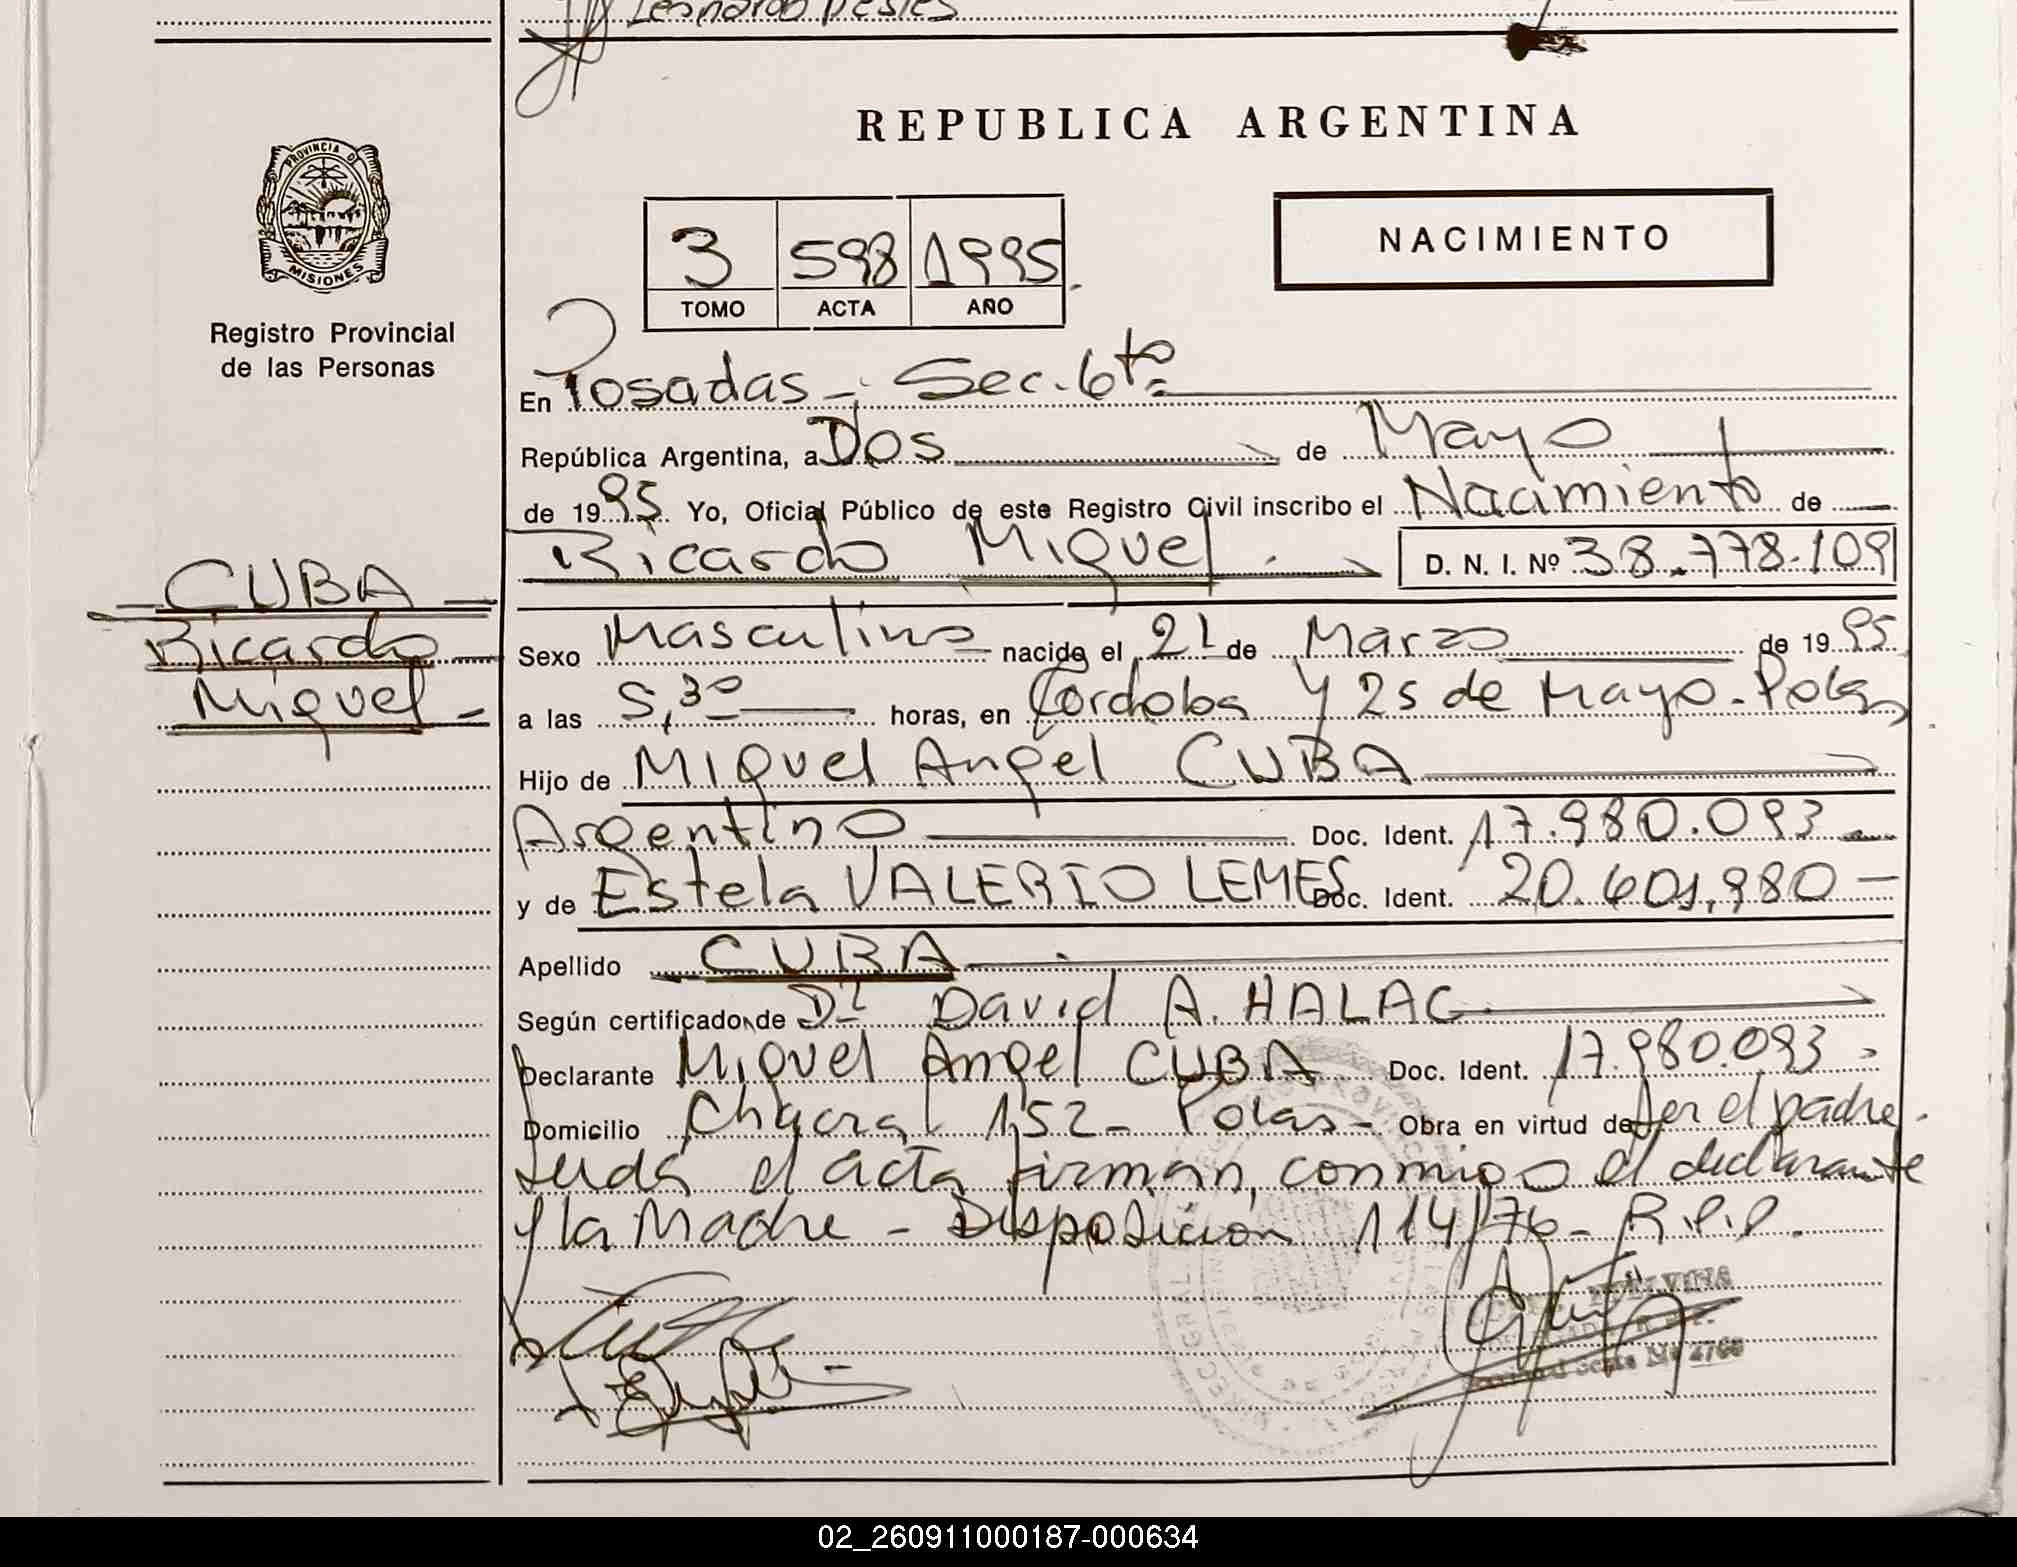 Leonardo
REPUBLICA ARGENTINA
PROVINCIA DE
MISIONES
Registro Provincial
de las Personas
3 598 1995
TOMO ACTA AÑO
NACIMIENTO
En Posadas - Sec. 6ta
República Argentina, a Dos de Mayo
de 1995 Yo, Oficial Público de este Registro Civil inscribo el Nacimiento de
Ricardo Miguel D. N. I. Nº 38.778.109
CUBA
Ricardo
Miguel
Sexo Masculino nacido el 21 de Marzo de 1995
a las 5,30 horas, en Cordoba y 25 de Mayo - Pdas
Hijo de Miguel Angel CUBA
Argentino Doc. Ident. 17.980.093
y de Estela VALERIO LEMES Doc. Ident. 20.601.980
Apellido CUBA
Según certificado de Dr David A. HALAC
Declarante Miguel Angel CUBA Doc. Ident. 17.980.093
Domicilio Chacra 152 - Pdas - Obra en virtud de ser el padre.
Leida el acta firman, conmigo el declarante
y la Madre - Disposición 114/76 - R.P.P.
02_260911000187-000634